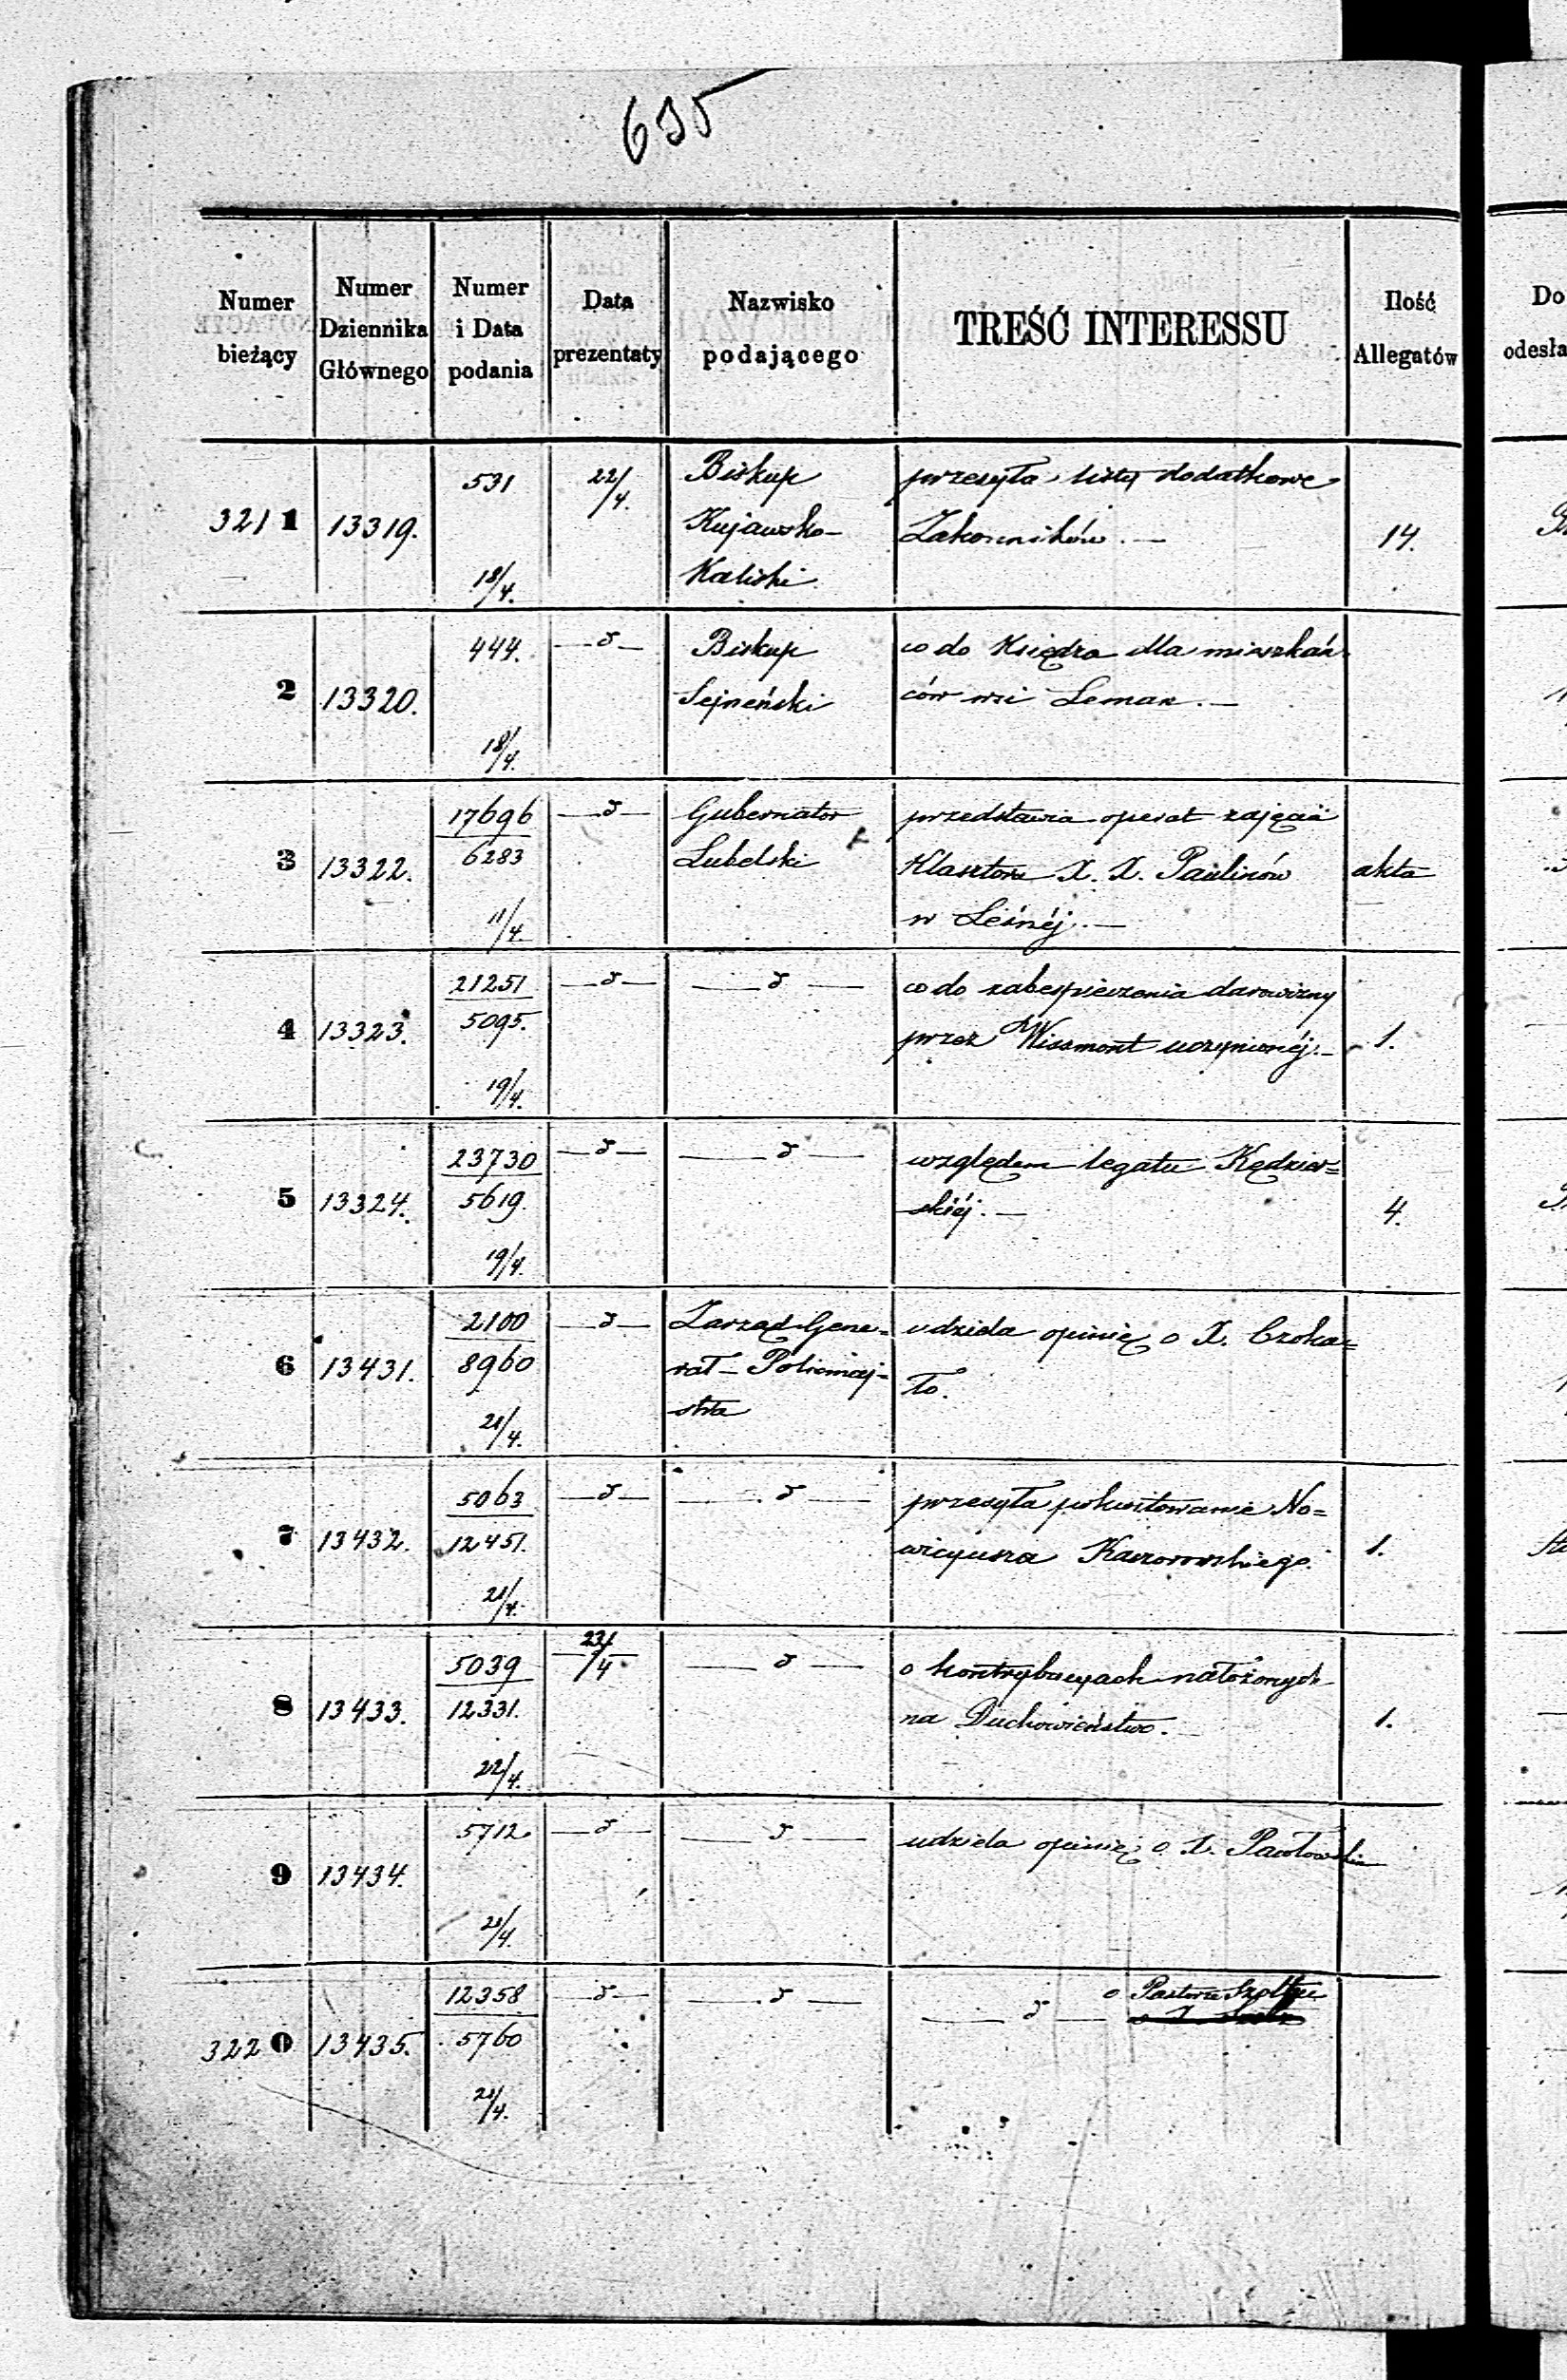 635
Numer bieżący
Numer Dziennika Głównego
Numer i Data podania
Data prezentaty
Nazwisko podającego
TREŚĆ INTERESSU
Ilość Allegatów
Do
odesła
3211 13319. 531 18/4. 22/4. Biskup Kujawsko- Kaliski
przesyła listy dodatkowe
Zakonników. —
14.
2 13320. 444. 18/4. — d — Biskup Sejneński
co do Księdza dla mieszkań-
ców wsi Leman. —
3 13322. 17696 6283 11/4. — d — Gubernator Lubelski
przedstawia operat zajęcia
Klasztoru X. X. Paulinów
w Leśnéj. —
akta
4 13323. 21251 5095. 19/4. — d — — d —
co do zabezpieczenia darowizny
przez Wissmont uczynionéj. —
1.
5 13324. 23730 5619. 19/4. — d — — d —
względem legatu Kędzier=
skiéj. —
4.
6 13431. 2100 8960 21/4. — d — Zarząd Gene= rał- Policmaj= stra
udziela opinię o X. Czoka=
ło.
7 13432. 5063 12451. 21/4. — d — — d —
przesyła pokwitowanie No=
wicyusza Kaszorowskiego.
1.
8 13433. 5039 12331. 22/4. 23/4 — d —
o kontrybucyach nałożonych
na Duchowieństwo. —
1.
9 13434. 5712. 21/4. — d — — d —
udziela opinię o X. Pawłowskim
3220 13435. 12358 5760 21/4. — d — — d —
— d — o Pastorze